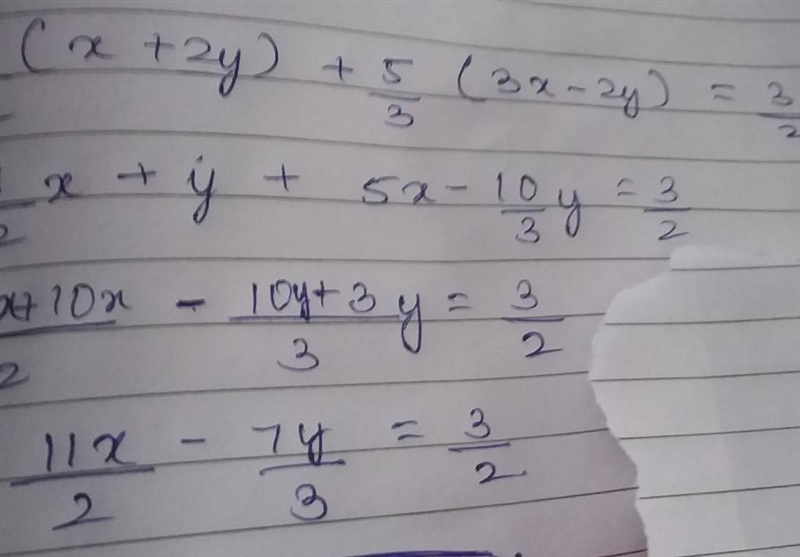 (x + 2y) + 5/3 (3x - 2y) = 3/2
/2 x + y + 5x - 10/3 y = 3/2
x + 10x/2 - 10y + 3/3 y = 3/2
11x/2 - 7y/3 = 3/2